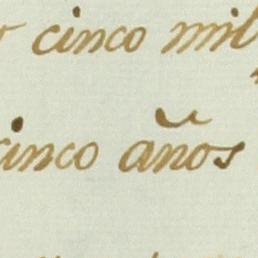 cinco mil
cinco años